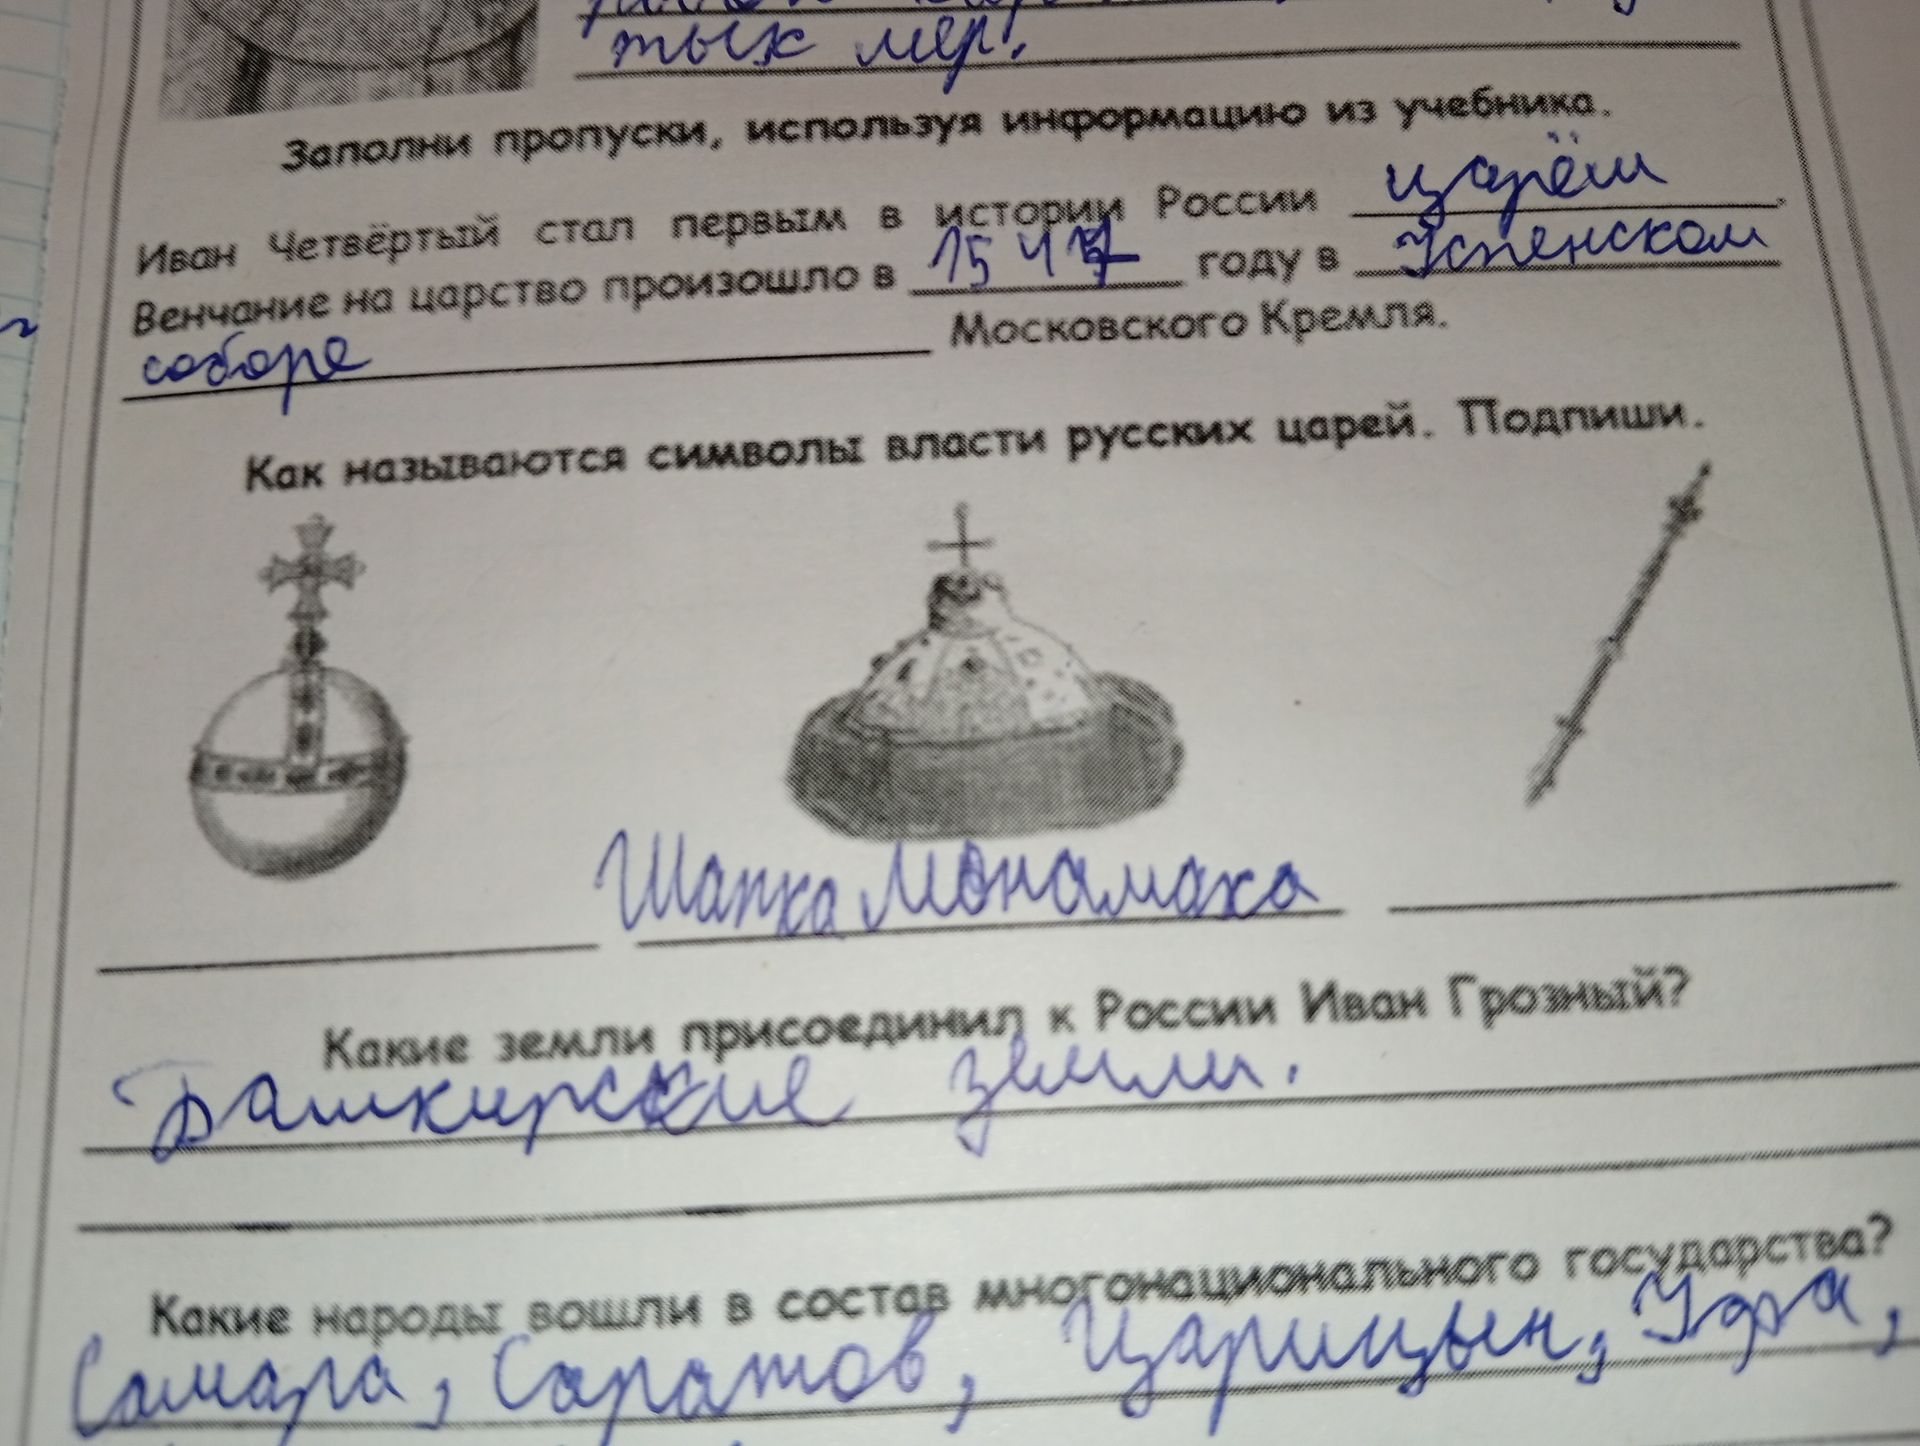 тых мер.
Заполни пропуски, используя информацию из учебника.
Иван Четвёртый стал первым в истории России царём.
Венчание на царство произошло в 1547 году в Успенском
соборе Московского Кремля.
Как называются символы власти русских царей. Подпиши.
Шапка Мономаха
Какие земли присоединил к России Иван Грозный?
Башкирские земли.
Какие народы вошли в состав многонационального государства?
Самара, Саратов, Царицын, Уфа,